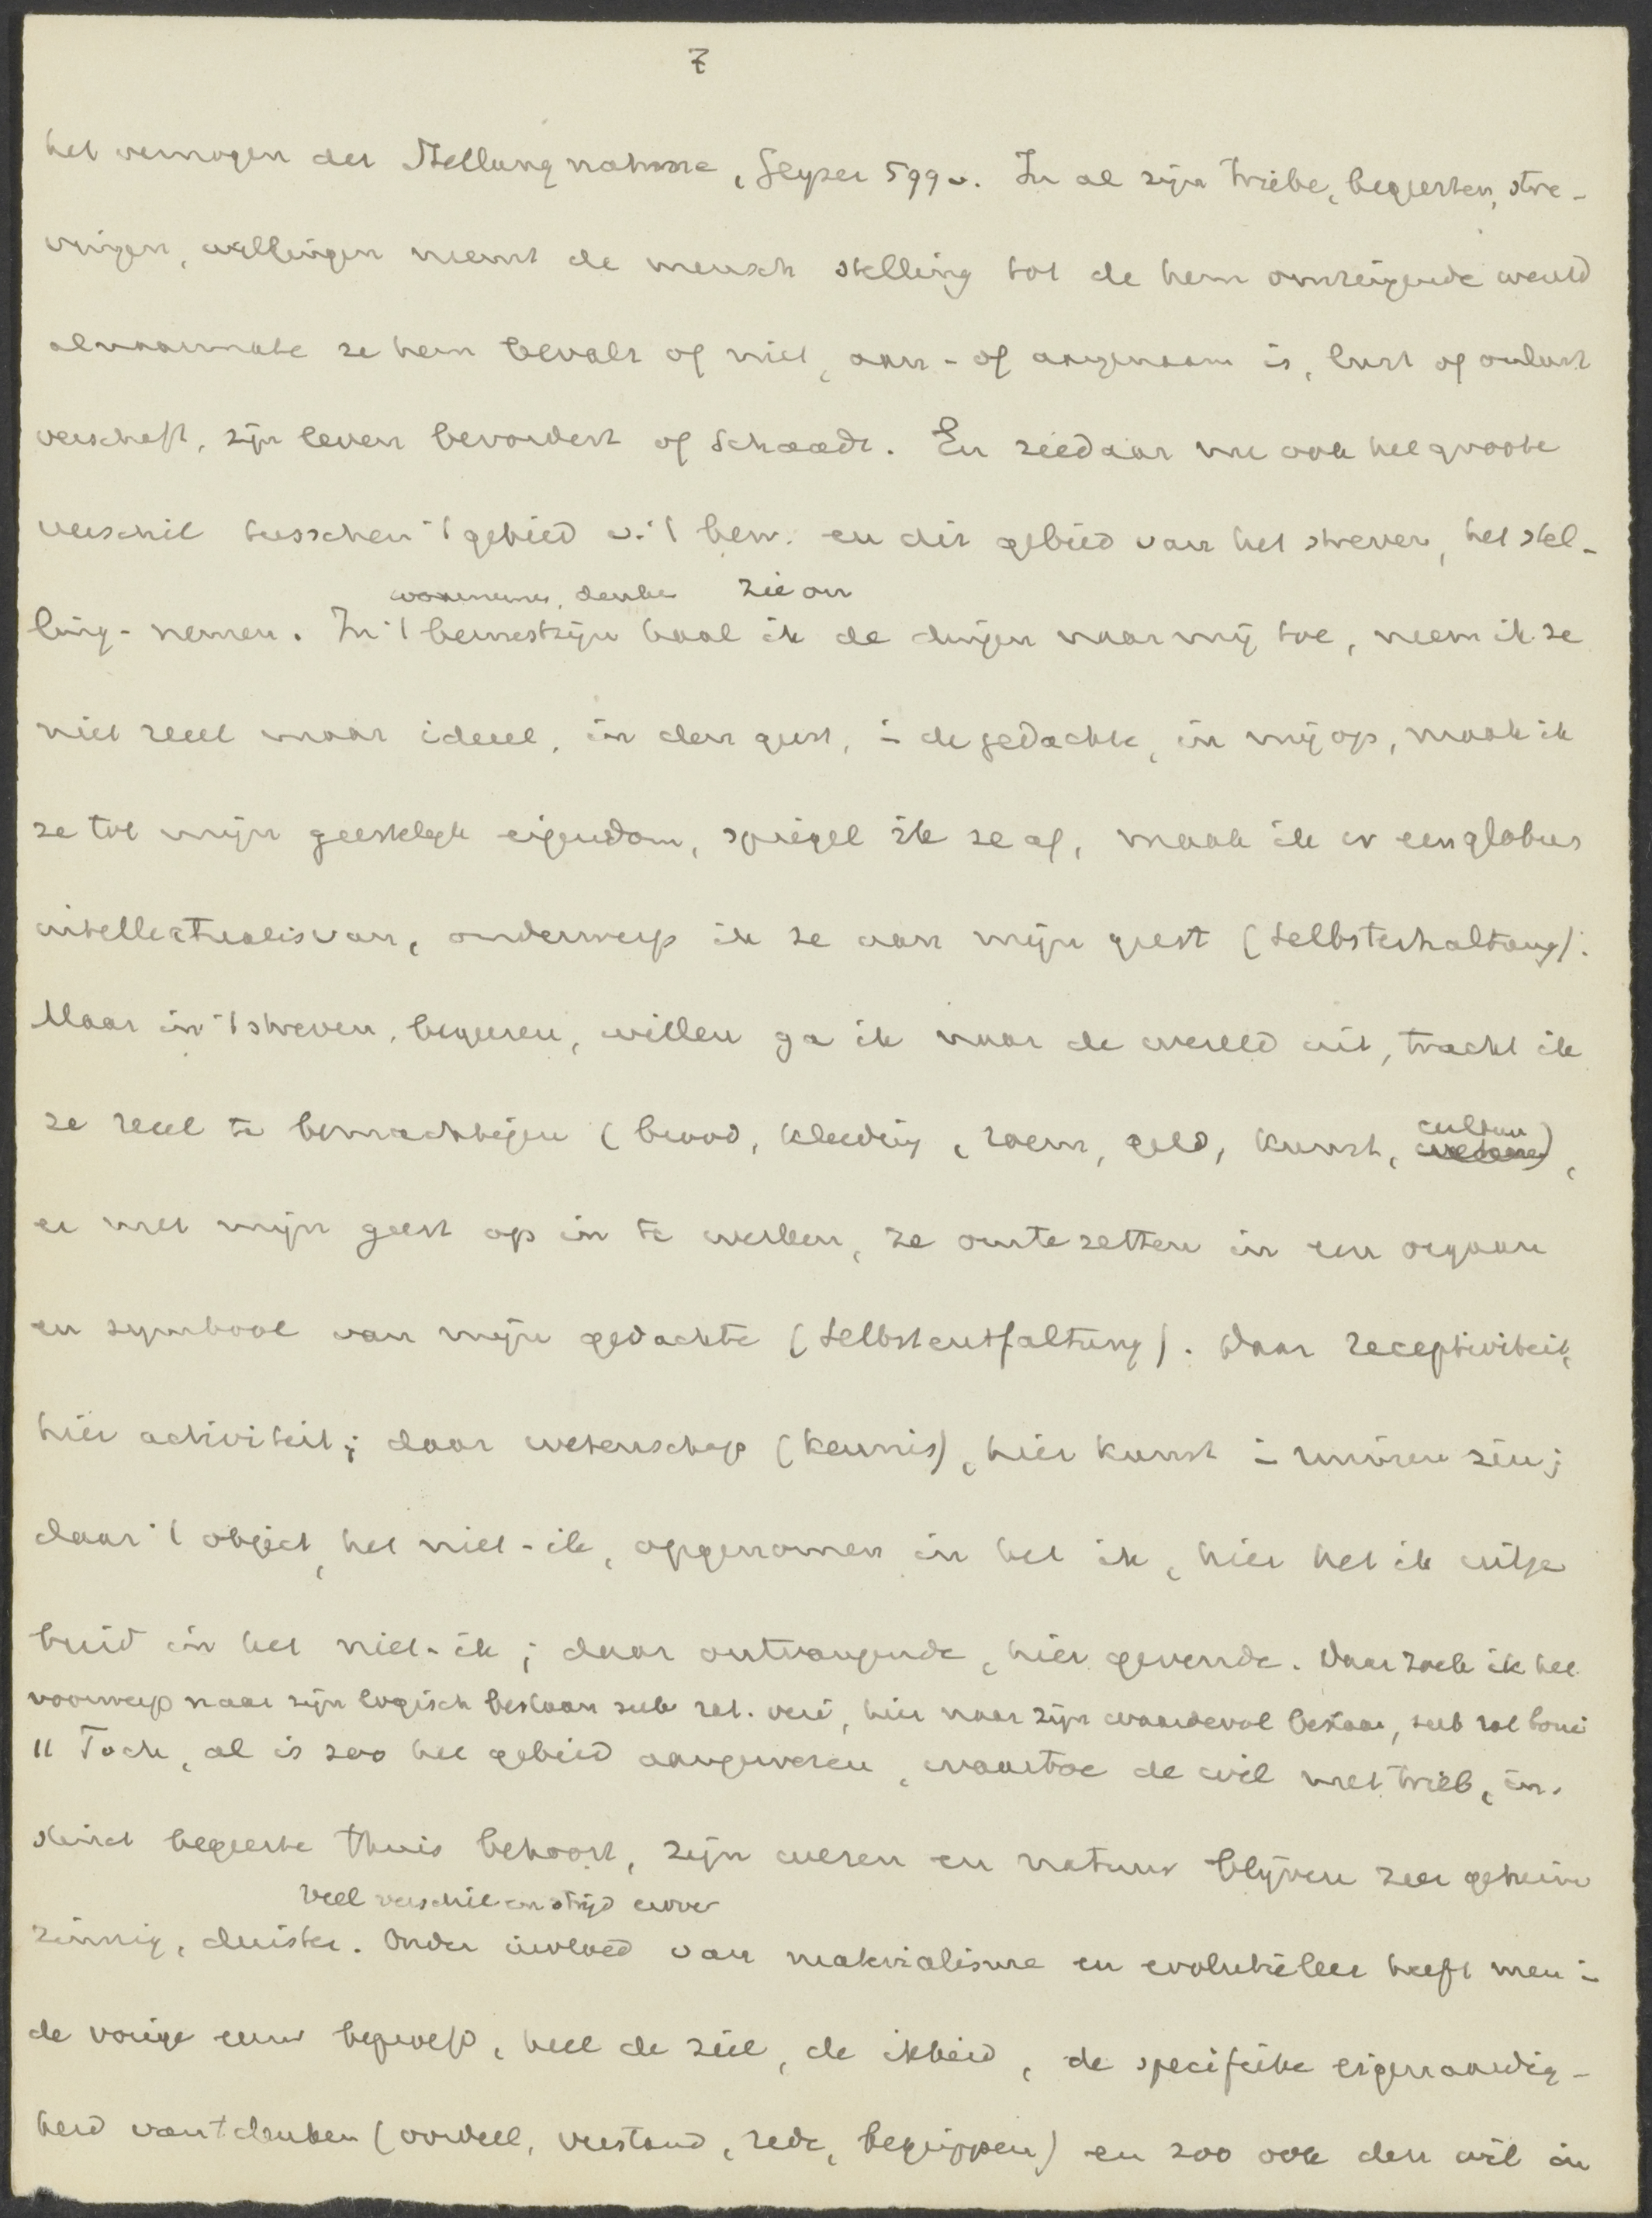 7
het vermogen der Stellungnahme, Geyser 599v. In al zijn Triebe, begeerten, stre-
vingen, willingen neemt de mensch stelling tot de hem omringende wereld
al naarmate ze hem bevalt of niet, aan- of aangenaam is, lust of onlust
verschaft, zijn leven bevordert of schaadt. En ziedaar nu ook het groote
verschil tusschen 't gebied v. 't bew. en dit gebied van het streven, het stel-
waarnemen, denken zie on
ling-nemen. In 't bewustzijn haal ik de dingen naar mij toe, neem ik ze
niet reëel maar ideëel, in den geest, in de gedachte, in mij op, maak ik
ze tot mijn geestelijk eigendom, spiegel ik ze af, maak ik er een globus
intellectualis van, onderwerp ik ze aan mijn geest (Selbsterhaltung).
Maar in 't streven, begeeren, willen ga ik naar de wereld uit, tracht ik
ze reëel te bemachtigen (brood, kleeding, roem, geld, kunst, cultuur),
er met mijn geest op in te werken, ze om te zetten in een orgaan
en symbool van mijn gedachte (Selbstentfaltung). Daar receptiviteit,
hier activiteit; daar wetenschap (kennis), hier kunst in ruimeren zin;
daar 't object, het niet-ik, opgenomen in het ik, hier het ik uitge
breid in het niet-ik; daar ontvangende, hier gevende. Daar zoek ik het
voorwerp naar zijn logisch bestaan sub rat. veri, hier naar zijn waardevol bestaan, sub rat boni
11 Toch, al is zoo het gebied aangewezen, waartoe de wil met trieb, in-
stinct begeerte thuis behoort, zijn wezen en natuur blijven zeer geheim
veel verschil en strijd erover
zinnig, duister. Onder invloed van materialisme en evolutieleer heeft men in
de vorige eeuw beproefd, heel de ziel, de ikheid, de specifieke eigenaardig-
heid van 't denken (oordeel, verstand, rede, begrippen) en zoo ook den wil in